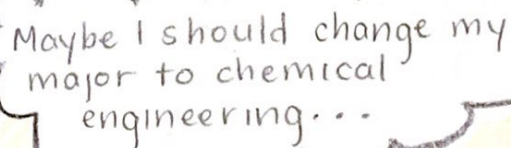 Maybe I should change my
major to chemical
engineering...